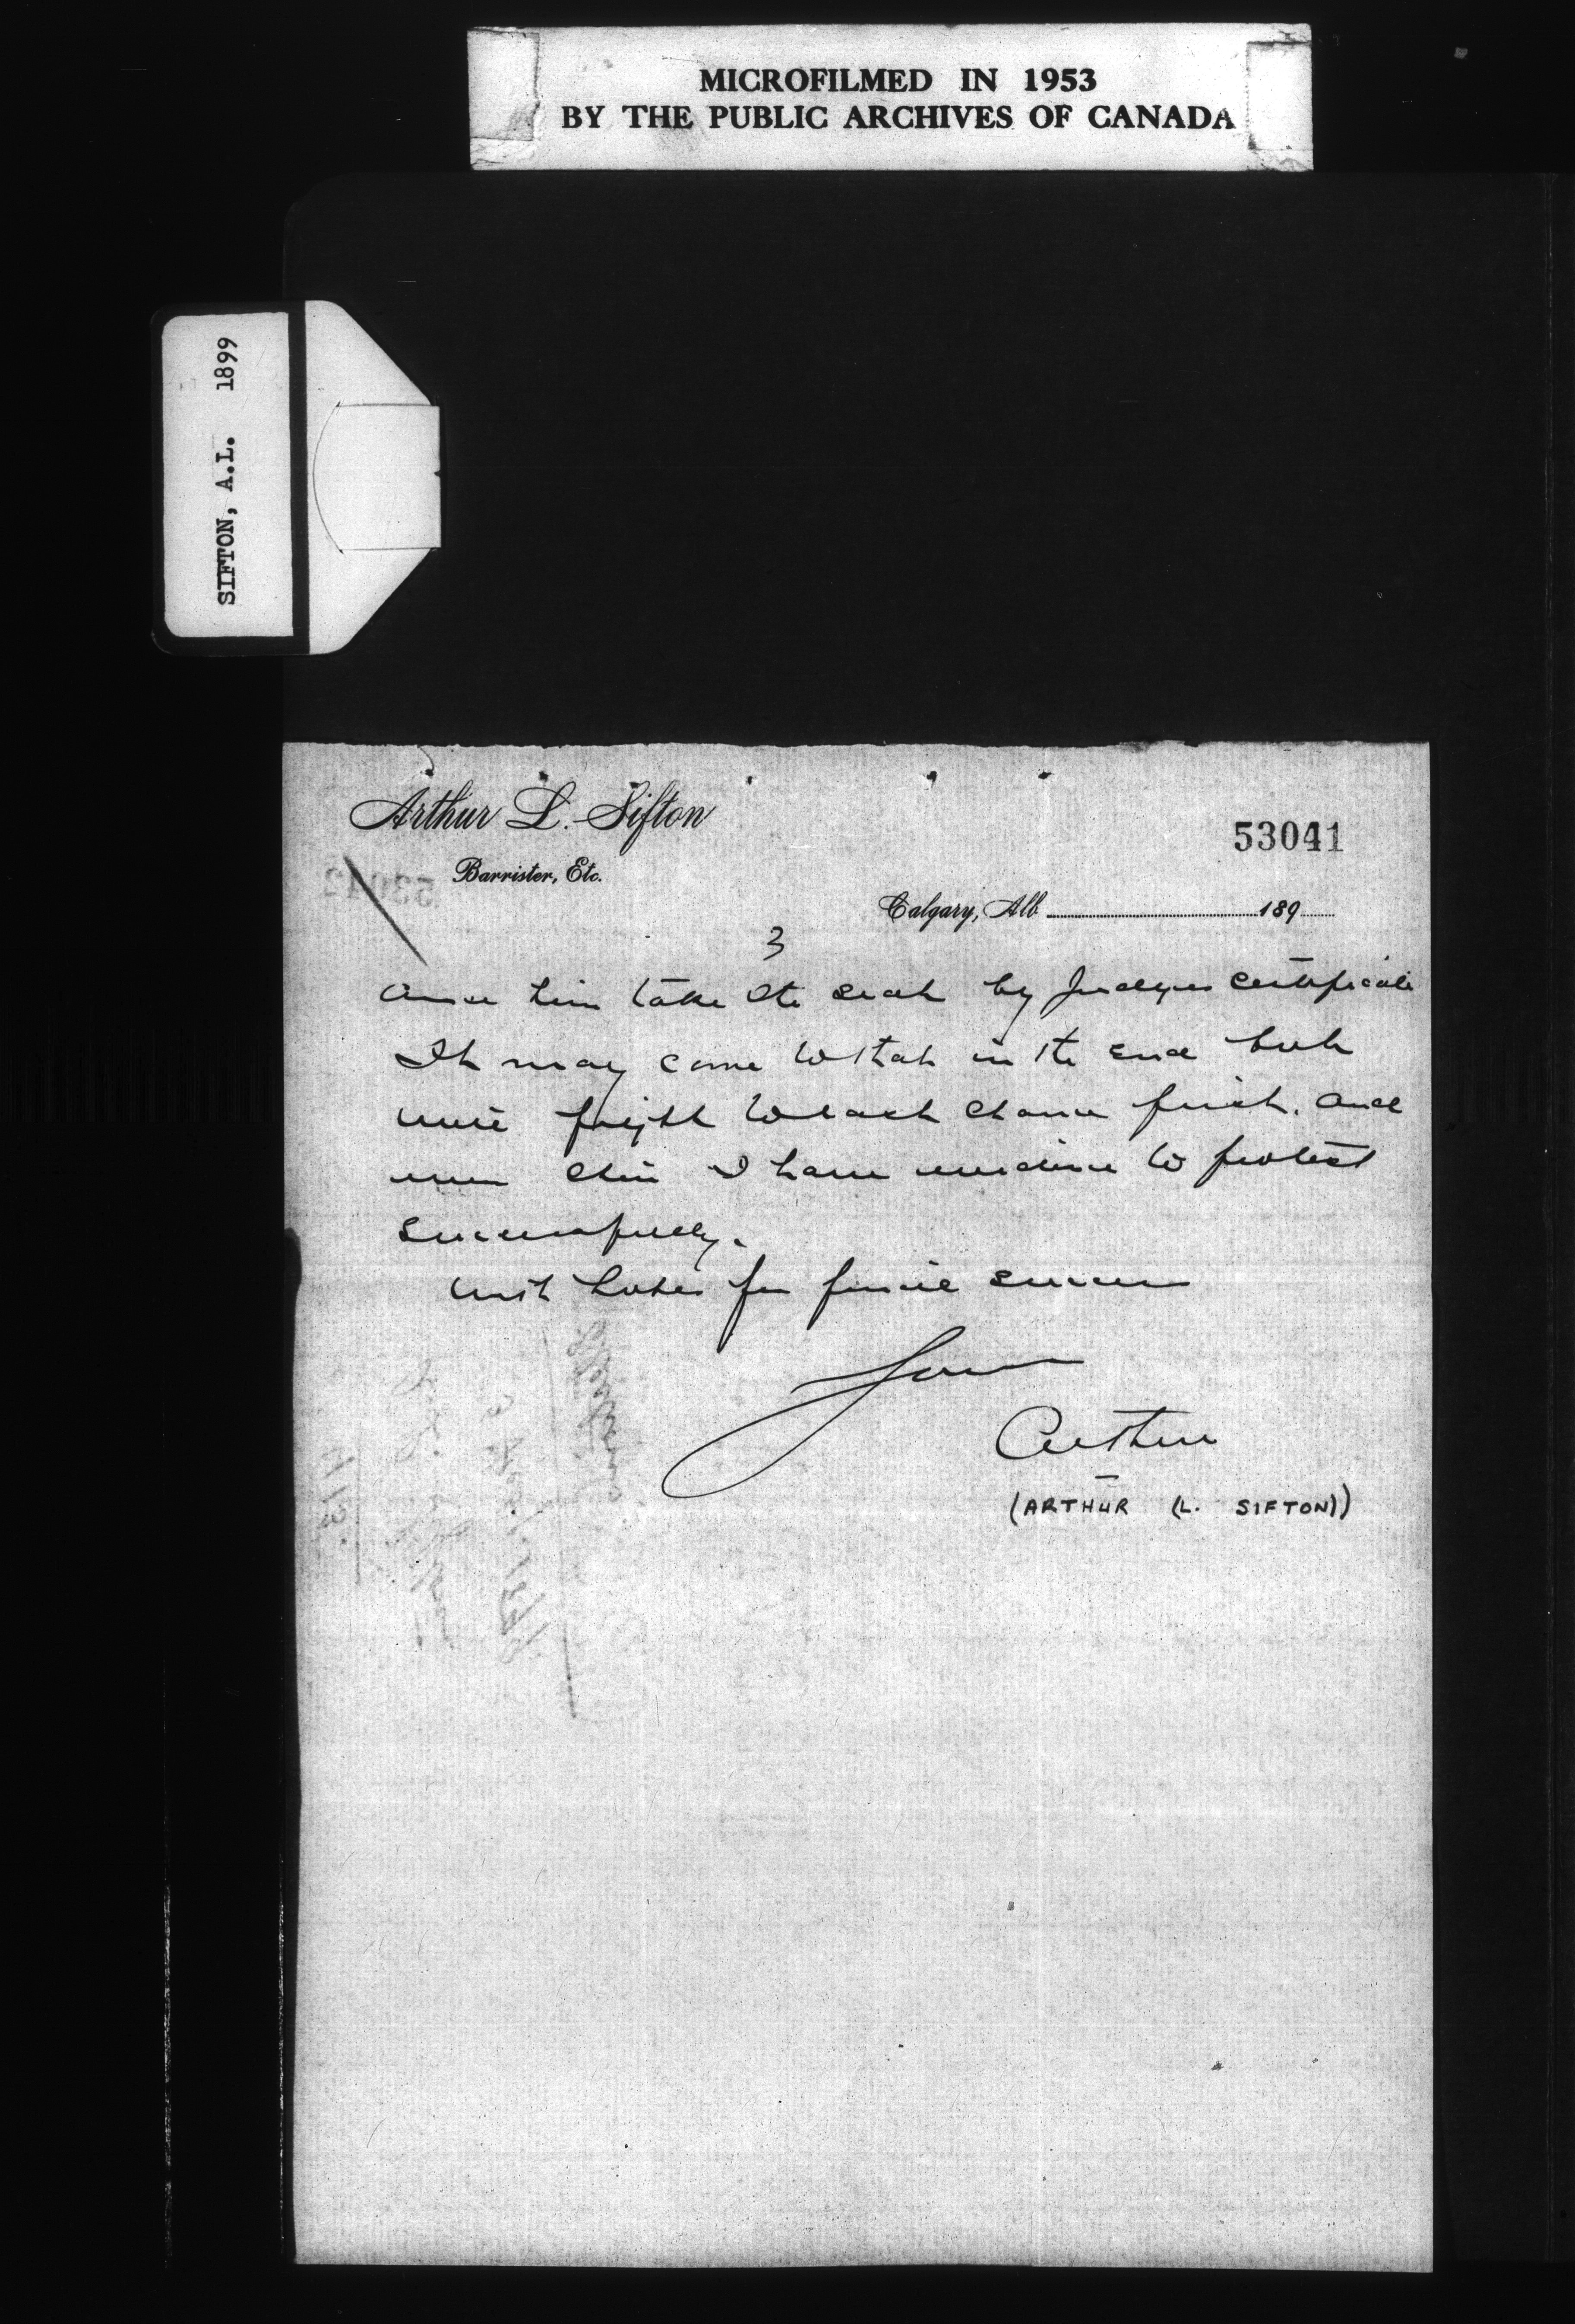 MICROFILMED IN 1953
BY THE PUBLIC ARCHIVES OF CANADA
SIFTON, A.L. 1899
Arthur L. Sifton
Barrister, Etc.
53041
Calgary, Alb 189
3
him take the seat by Judges certificate
It may come to that in the end but
will fight to last chance first. and
even then I have evidence to protest
successfully.
With hopes for final success
Yours
Arthur
(ARTHUR (L. SIFTON))